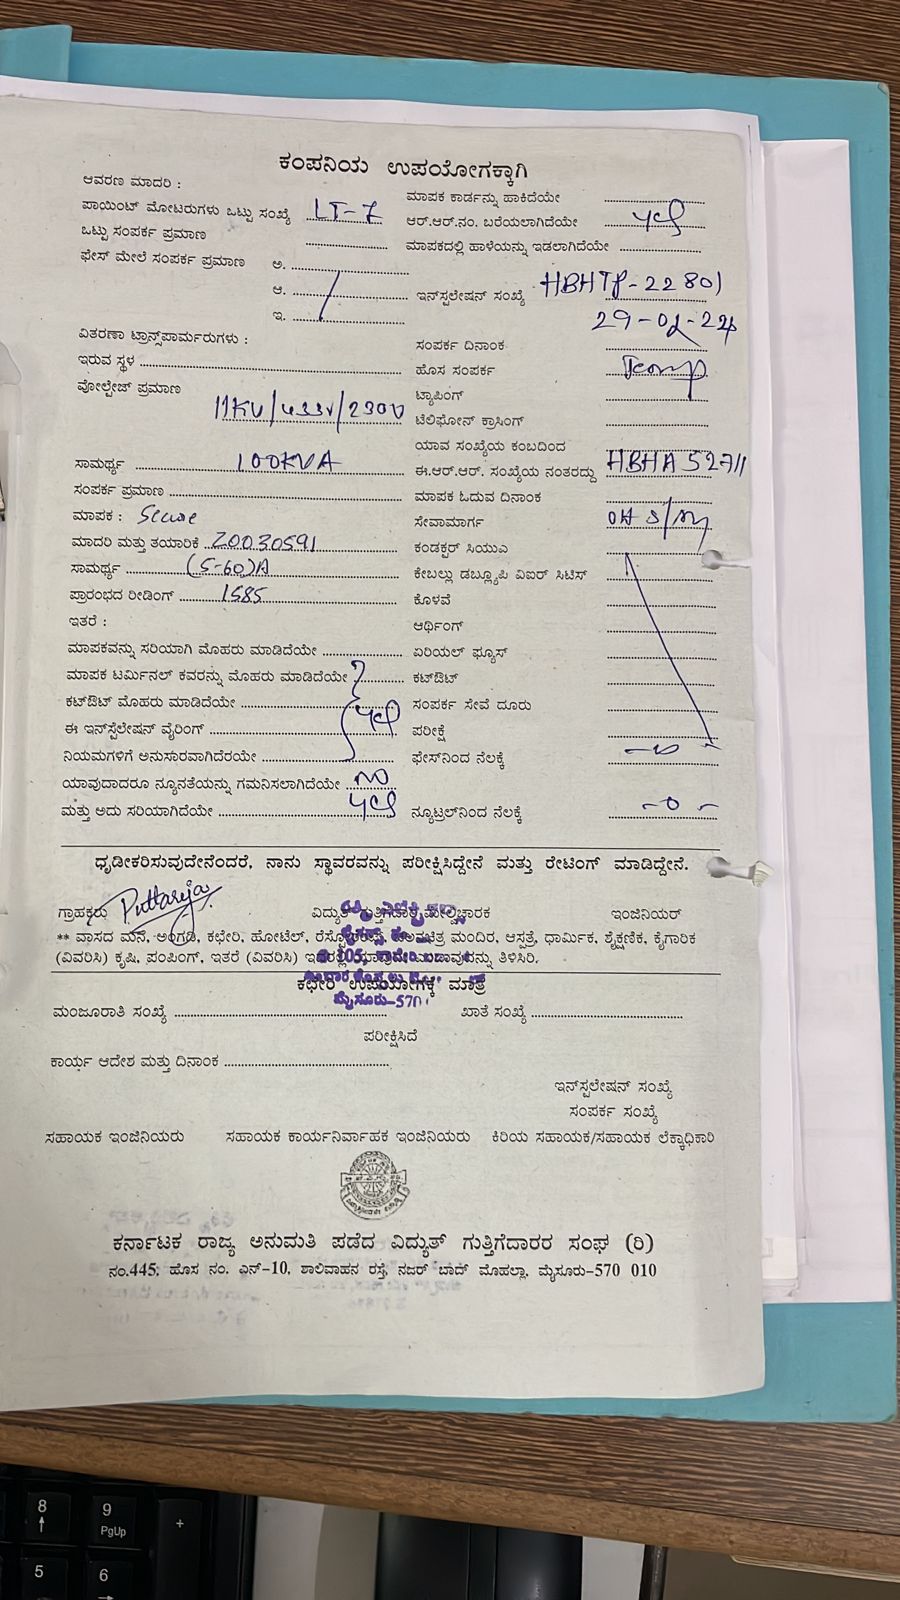 ಕಂಪನಿಯ ಉಪಯೋಗಕ್ಕಾಗಿ
ಆವರಣ ಮಾದರಿ :
ಮಾಪಕ ಕಾರ್ಡನ್ನು ಹಾಕಿದೆಯೇ
ಪಾಯಿಂಟ್ ಮೋಟರುಗಳು ಒಟ್ಟು ಸಂಖ್ಯೆ LT-7
ಆರ್.ಆರ್.ನಂ. ಬರೆಯಲಾಗಿದೆಯೇ yes
ಒಟ್ಟು ಸಂಪರ್ಕ ಪ್ರಮಾಣ
ಮಾಪಕದಲ್ಲಿ ಹಾಳೆಯನ್ನು ಇಡಲಾಗಿದೆಯೇ
ಫೇಸ್ ಮೇಲೆ ಸಂಪರ್ಕ ಪ್ರಮಾಣ ಅ.
ಆ.
ಇನ್ಸ್ಟಲೇಷನ್ ಸಂಖ್ಯೆ HBHTP-22801
ಇ.
ವಿತರಣಾ ಟ್ರಾನ್ಸ್‌ಪಾರ್ಮರುಗಳು :
ಸಂಪರ್ಕ ದಿನಾಂಕ
ಇರುವ ಸ್ಥಳ
ಹೊಸ ಸಂಪರ್ಕ Temp
ವೋಲ್ಟೇಜ್ ಪ್ರಮಾಣ 11KV/433V/230V
ಟ್ಯಾಪಿಂಗ್
ಟೆಲಿಫೋನ್ ಕ್ರಾಸಿಂಗ್
ಯಾವ ಸಂಖ್ಯೆಯ ಕಂಬದಿಂದ
ಸಾಮರ್ಥ್ಯ 100KVA
ಈ.ಆರ್.ಆರ್. ಸಂಖ್ಯೆಯ ನಂತರದ್ದು HBHA 52711
ಸಂಪರ್ಕ ಪ್ರಮಾಣ
ಮಾಪಕ ಓದುವ ದಿನಾಂಕ
ಮಾಪಕ : Secure
ಸೇವಾಮಾರ್ಗ
ಮಾದರಿ ಮತ್ತು ತಯಾರಿಕೆ 20030591
ಕಂಡಕ್ಟರ್ ಸಿಯುಎ
ಸಾಮರ್ಥ್ಯ (5-60)A
ಕೇಬಲ್ಲು ಡಬ್ಲ್ಯೂಪಿ ವಿಐರ್ ಸಿಟಿಸ್
ಪ್ರಾರಂಭದ ರೀಡಿಂಗ್ 1585
ಕೊಳವೆ
ಇತರೆ :
ಆರ್ಥಿಂಗ್
ಮಾಪಕವನ್ನು ಸರಿಯಾಗಿ ಮೊಹರು ಮಾಡಿದೆಯೇ
ಏರಿಯಲ್ ಫ್ಯೂಸ್
ಮಾಪಕ ಟರ್ಮಿನಲ್ ಕವರನ್ನು ಮೊಹರು ಮಾಡಿದೆಯೇ
ಕಟ್‌ಔಟ್
ಕಟ್‌ಔಟ್ ಮೊಹರು ಮಾಡಿದೆಯೇ yes
ಸಂಪರ್ಕ ಸೇವೆ ದೂರು
ಈ ಇನ್‌ಸ್ಟಲೇಷನ್ ವೈರಿಂಗ್
ಪರೀಕ್ಷೆ
ನಿಯಮಗಳಿಗೆ ಅನುಸಾರವಾಗಿದೆರಯೇ
ಫೇಸ್‌ನಿಂದ ನೆಲಕ್ಕೆ
ಯಾವುದಾದರೂ ನ್ಯೂನತೆಯನ್ನು ಗಮನಿಸಲಾಗಿದೆಯೇ no
ಮತ್ತು ಅದು ಸರಿಯಾಗಿದೆಯೇ yes
ನ್ಯೂಟ್ರಲ್‌ನಿಂದ ನೆಲಕ್ಕೆ -0-
ಧೃಡೀಕರಿಸುವುದೇನೆಂದರೆ, ನಾನು ಸ್ಥಾವರವನ್ನು ಪರೀಕ್ಷಿಸಿದ್ದೇನೆ ಮತ್ತು ರೇಟಿಂಗ್ ಮಾಡಿದ್ದೇನೆ.
ಗ್ರಾಹಕರು Puttaraja ವಿದ್ಯುತ್ ಗುತ್ತಿಗೆದಾರ ಮೇಲ್ವಿಚಾರಕ ಇಂಜಿನಿಯರ್
** ವಾಸದ ಮನೆ, ಅಂಗಡಿ, ಕಛೇರಿ, ಹೋಟೆಲ್, ಮಂದಿರ, ಆಸ್ಪತ್ರೆ, ಧಾರ್ಮಿಕ, ಶೈಕ್ಷಣಿಕ, ಕೈಗಾರಿಕ
(ವಿವರಿಸಿ) ಕೃಷಿ, ಪಂಪಿಂಗ್, ಇತರೆ (ವಿವರಿಸಿ) ತಿಳಿಸಿರಿ.
ಕಛೇರಿ ಉಪಯೋಗಕ್ಕೆ ಮಾತ್ರ
ಮೈಸೂರು-570
ಮಂಜೂರಾತಿ ಸಂಖ್ಯೆ ಖಾತೆ ಸಂಖ್ಯೆ
ಪರೀಕ್ಷಿಸಿದೆ
ಕಾರ್ಯ ಆದೇಶ ಮತ್ತು ದಿನಾಂಕ
ಇನ್‌ಸ್ಟಲೇಷನ್ ಸಂಖ್ಯೆ
ಸಂಪರ್ಕ ಸಂಖ್ಯೆ
ಸಹಾಯಕ ಇಂಜಿನಿಯರು ಸಹಾಯಕ ಕಾರ್ಯನಿರ್ವಾಹಕ ಇಂಜಿನಿಯರು ಕಿರಿಯ ಸಹಾಯಕ/ಸಹಾಯಕ ಲೆಕ್ಕಾಧಿಕಾರಿ
ಕರ್ನಾಟಕ ರಾಜ್ಯ ಅನುಮತಿ ಪಡೆದ ವಿದ್ಯುತ್ ಗುತ್ತಿಗೆದಾರರ ಸಂಘ (ರಿ)
ನಂ.445, ಹೊಸ ನಂ. ಎನ್-10, ಶಾಲಿವಾಹನ ರಸ್ತೆ, ನಜರ್ ಬಾದ್ ಮೊಹಲ್ಲಾ, ಮೈಸೂರು-570 010
8
9
PgUp
+
5
6